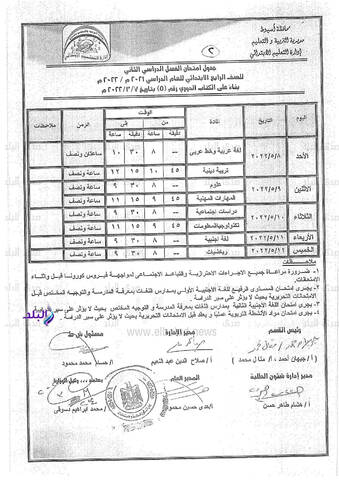 محافظة أسيوط
مديرية التربية و التعليم
إدارة التعليم الابتدائي
٢
جدول امتحان الفصل الدراسي الثاني
للصف الرابع الابتدائي للعام الدراسي ٢٠٢١ / ٢٠٢٢ م
بناء على الكتاب الدوري رقم (٥) بتاريخ ٢٠٢٢/٣/٧ م
اليوم التاريخ المادة الوقت الزمن ملاحظات
من إلى
دقيقة ساعة دقيقة ساعة
الأحد ٢٠٢٢/٥/٨ لغة عربية وخط عربى -- ٨ ٣٠ ١٠ ساعتان ونصف
تربية دينية ٤٥ ١٠ ١٥ ١٢ ساعة ونصف
الاثنين ٢٠٢٢/٥/٩ علوم -- ٨ ٣٠ ٩ ساعة ونصف
المهارات المهنية ٤٥ ٩ ١٥ ١١ ساعة ونصف
الثلاثاء ٢٠٢٢/٥/١٠ دراسات اجتماعية -- ٨ ٣٠ ٩ ساعة ونصف
تكنولوجيا المعلومات ٤٥ ٩ ١٥ ١١ ساعة ونصف
الأربعاء ٢٠٢٢/٥/١١ لغة اجنبية -- ٨ ٣٠ ٩ ساعة ونصف
الخميس ٢٠٢٢/٥/١٢ رياضيات -- ٨ ٣٠ ٩ ساعة ونصف
الملاحظات
١- ضرورة مراعاة جميع الاجراءات الاحترازية والتباعد الاجتماعى لمواجهة فيروس كورونا قبل وأثناء الامتحانات.
٢- يجرى امتحان المستوى الرفيع للغة الأجنبية الأولى بمدارس اللغات بمعرفة المدرسة والتوجيه المختص قبل
الامتحانات التحريرية بحيث لا يؤثر على سير الدراسة.
٣- يجرى امتحان اللغة الاجنبية الثانية بمدارس اللغات بمعرفة المدرسة و التوجيه المختص بحيث لا يؤثر على سير
٤- امتحان مواد الأنشطة التربوية عمليا و يعقد قبل الامتحانات التحريرية بحيث لا يؤثر على سير الدراسة.
البلد
رئيس القسم
مدير الإدارة
أ / صلاح الدين عبد النعيم
أ / حسام محمد محمود
مدير إدارة شئون الطلبة
أ / هشام طاهر حسن
المدير العام
يعتمد،، وكيل الوزارة
أ / محمد ابراهيم دسوقى